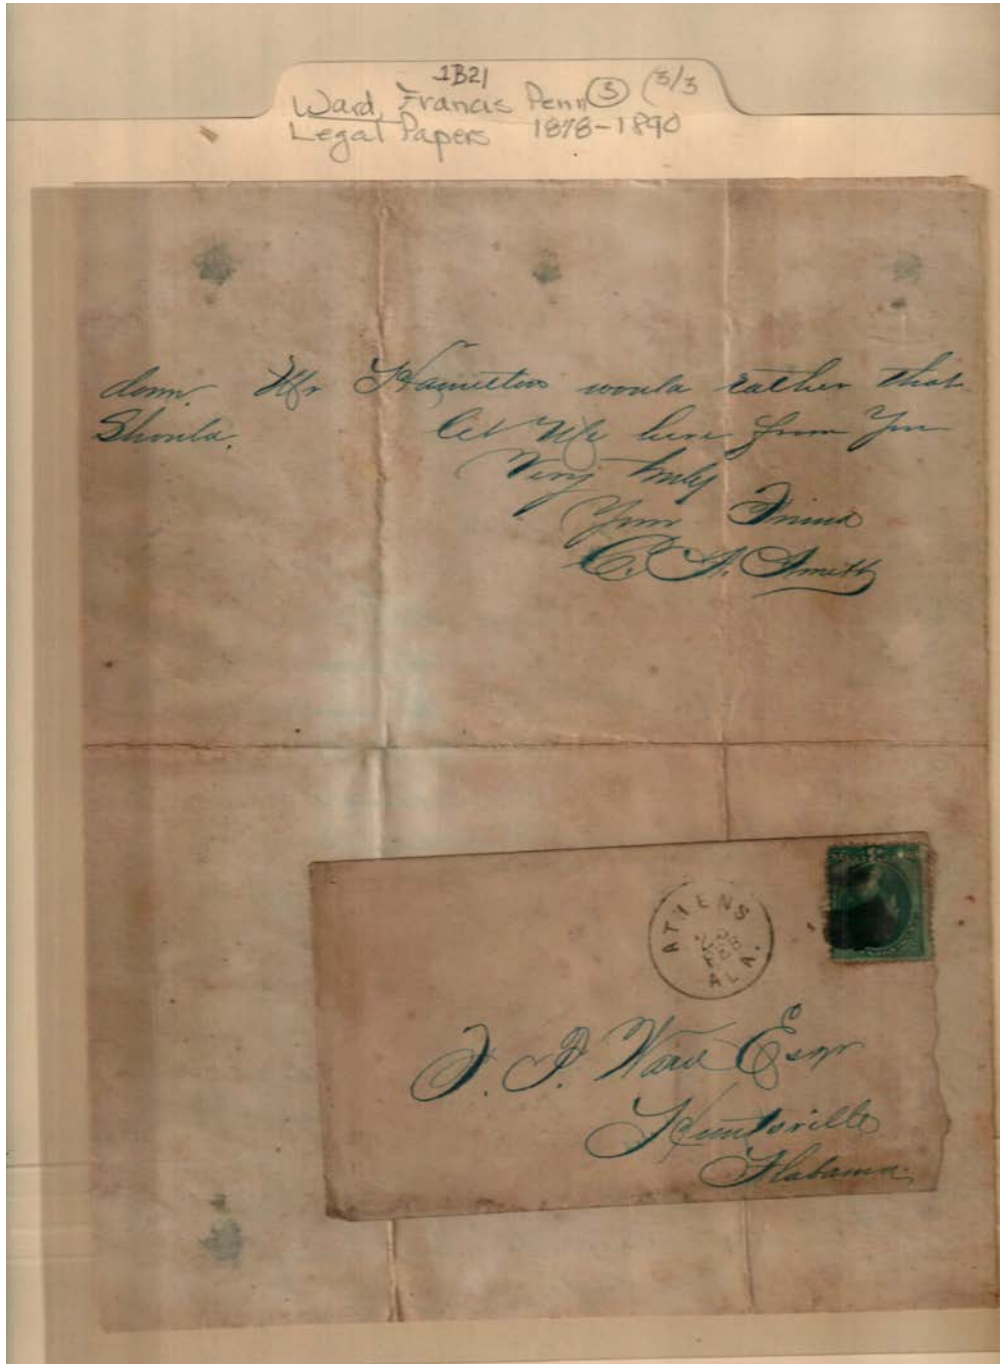 1B21
Ward, Francis Penn ③ (3/3
Legal Papers 1878-1890
down. Mr Hamilton would rather that
Should. Let Me here from You
Very truly
Your Friend
C. H. Smith
ATHENS
ALA.
F. P. Ward Esqr
Huntsville
Alabama.